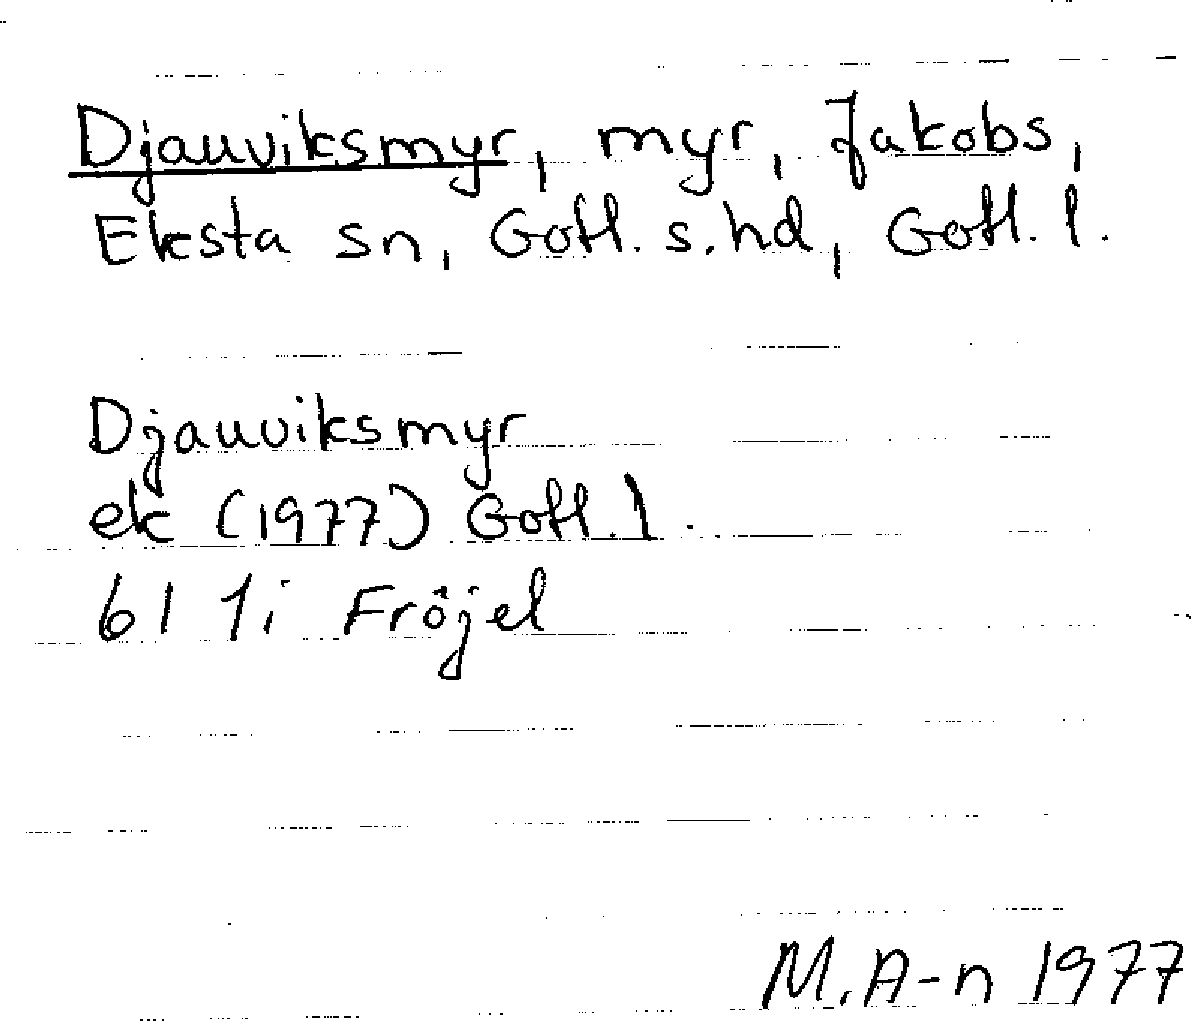 Djauviksmyr, myr, Jakobs,
Eksta sn, Gotl. s. hd, Gotl. l.
Djauviksmyr
ek (1977) Gotl. l.
61 1i Fröjel
M. A-n 1977